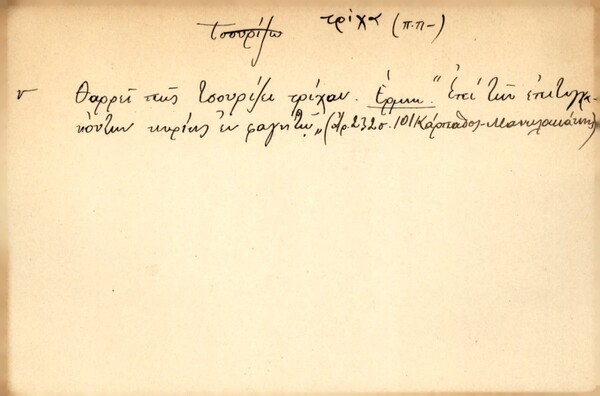 τσουρίζω τρίχα (π.π-)
ν Θαρρεῖ πῶς τσουρίζει τρίχαν. Ἑρμην. "ἐπὶ τῶν ἐπιτυγχα-
νόντων κυρίως ἐν φαγητῷ" (Ἀρ.232σ.101 Κάρπαθος-Μανωλακάκης)